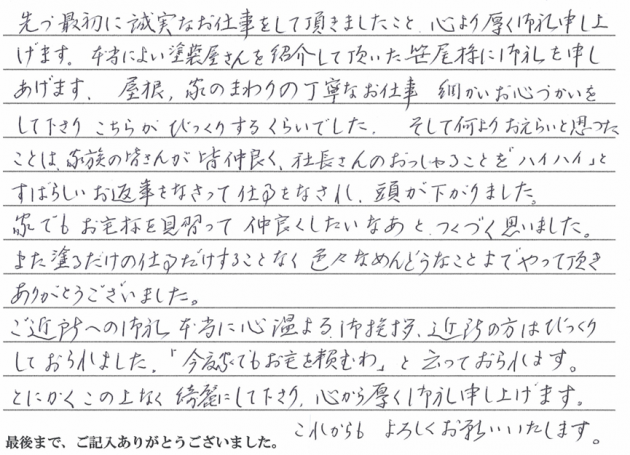 先づ最初に誠実なお仕事をして頂きましたこと、心より厚く御礼申し上
げます。本当によい塗装屋さんを紹介して頂いた笹尾様に御礼を申し
あげます。屋根、家のまわりの丁寧なお仕事 細かいお心づかいを
して下さり こちらが びっくりするくらいでした。 そして何よりおえらいと思った
ことは、家族の皆さんが皆仲良く、社長さんのおっしゃることを「ハイハイ」と
すばらしいお返事をなさって仕事をなされ、頭が下がりました。
家でもお宅様を見習って仲良くしたいなあと、つくづく思いました。
また塗るだけの仕事だけすることなく 色々なめんどうなことまでやって頂き
ありがとうございました。
ご近所への御礼 本当に心温まる御挨拶、近所の方はびっくり
しておられました。「今度家でもお宅を頼むわ」と云っておられます。
とにかくこの上なく綺麗にして下さり、心から厚く御礼申し上げます。
これからも よろしくお願いいたします。
最後まで、ご記入ありがとうございました。